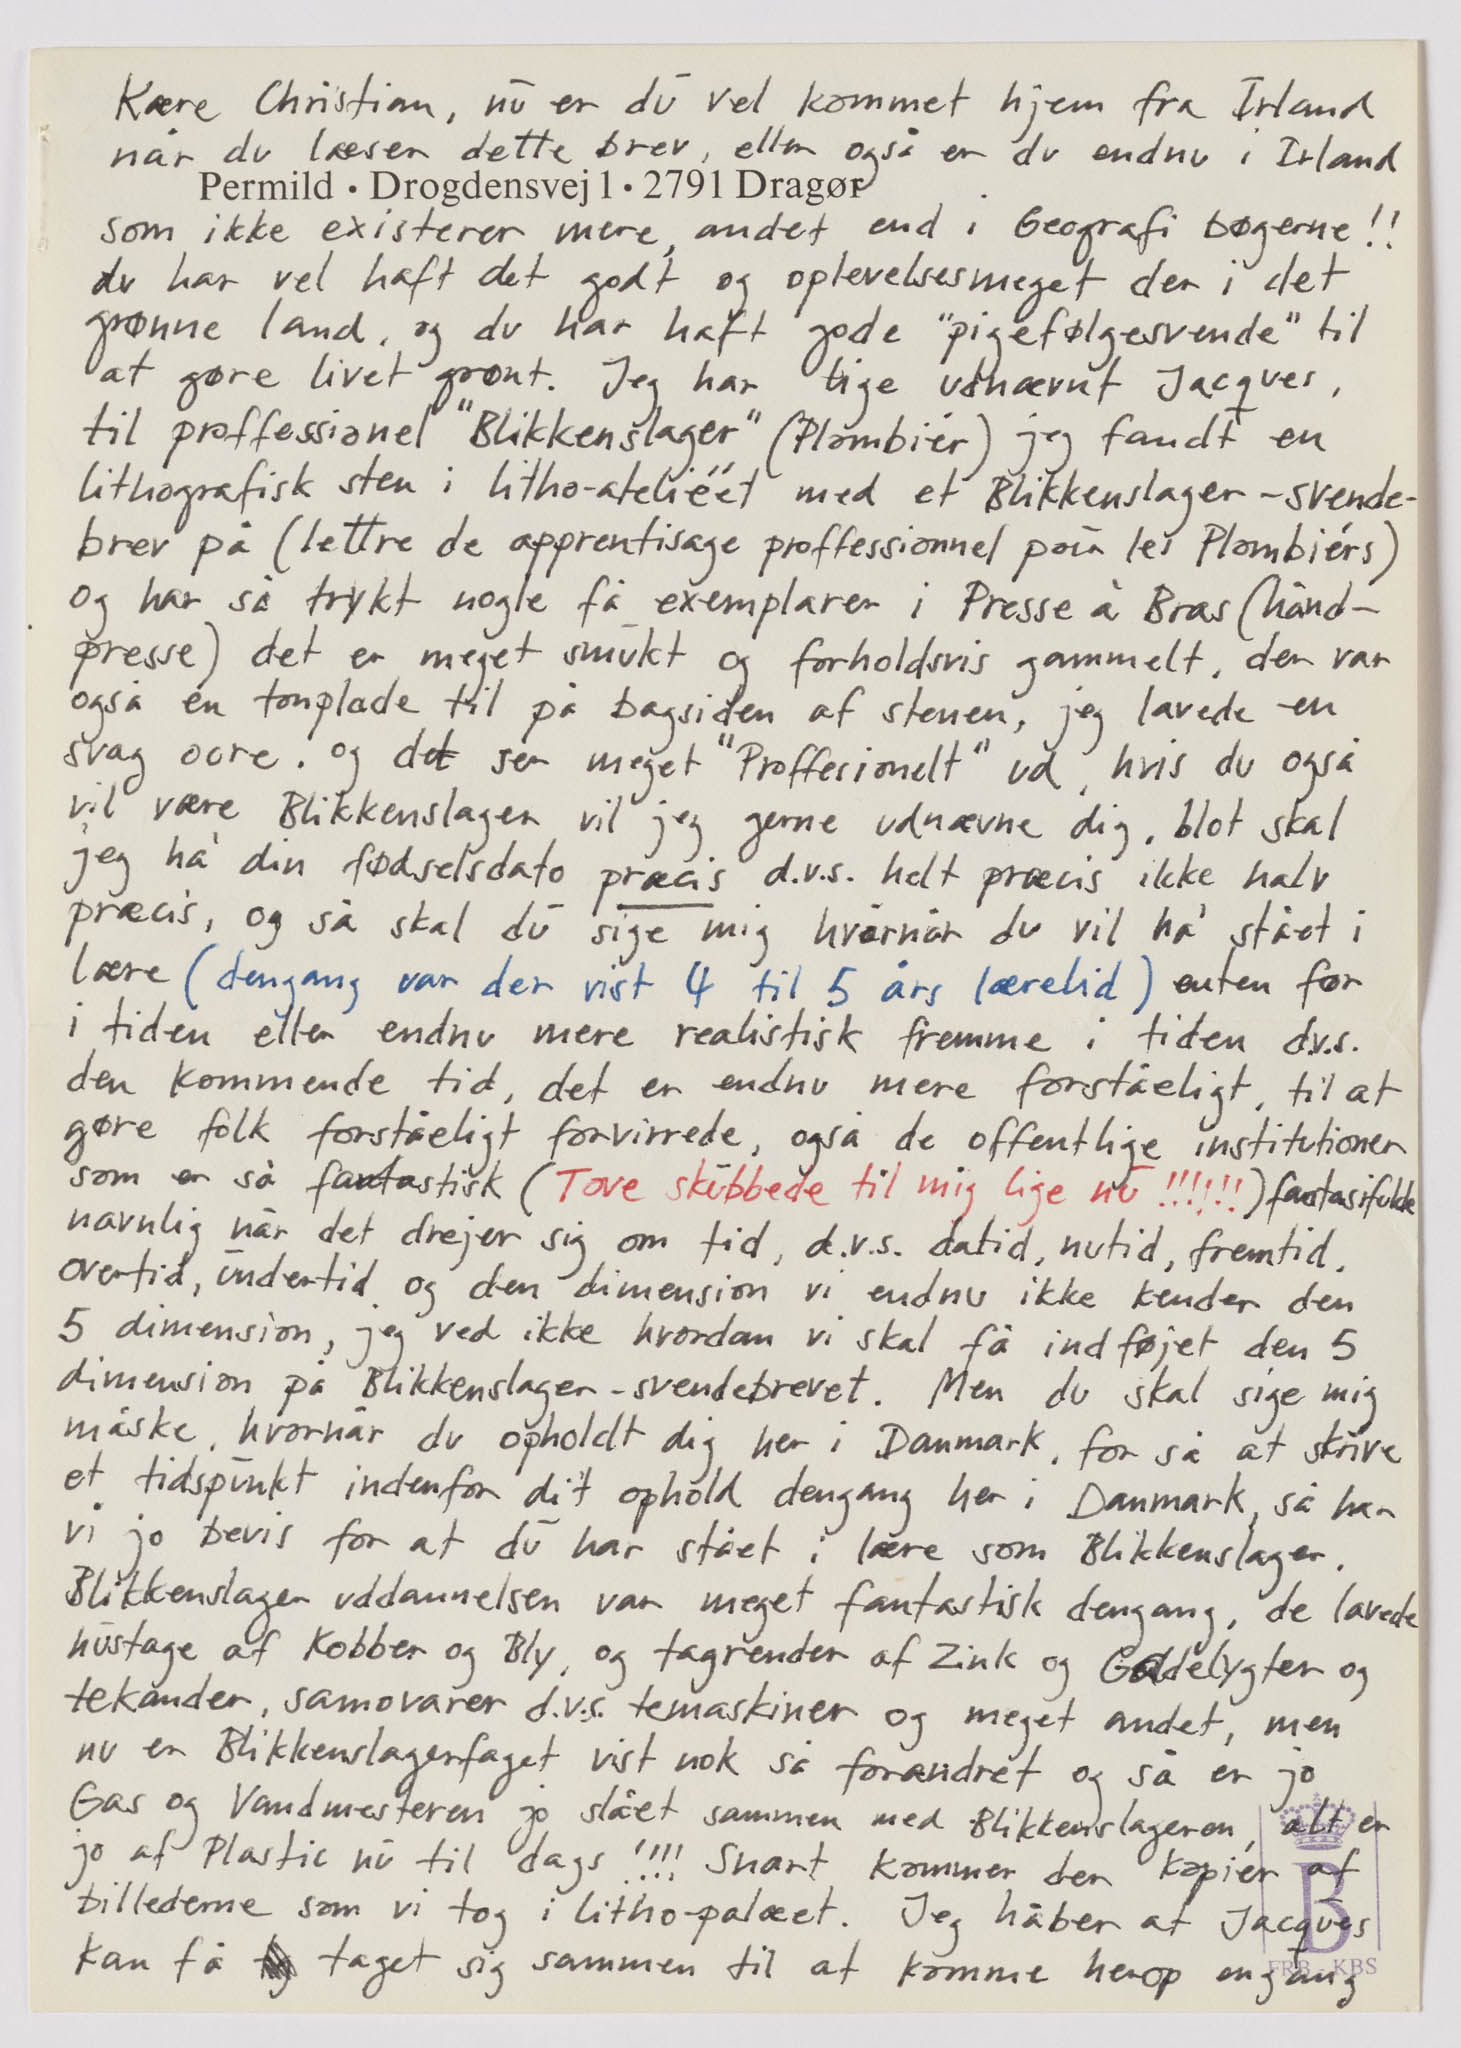 Kære Christian, nu er du vel kommet hjem fra Irland
når du læser dette brev, eller også er du endnu i Irland
Permild • Drogdensvej 1 • 2791 Dragør
som ikke existerer mere, andet end i Geografi bøgerne!!
du har vel haft det godt og oplevelsesmeget der i det
grønne land, og du har haft gode "pigefølgesvende" til
at gøre livet grønt. Jeg har lige udnævnt Jacques,
til proffessionel "Blikkenslager" (Plombiér) jeg fandt en
lithografisk sten i litho-ateliéet med et Blikkenslager-svende-
brev på (lettre de apprentisage proffessionnel les Plombiérs)
og har så trykt nogle få exemplarer i Presse à Bras (hånd-
presse) det er meget smukt og forholdsvis gammelt, der var
også én tonplade til på bagsiden af stenen, jeg lavede en
svag ocre. og det ser meget "Proffesionelt" ud, hvis du også
vil være Blikkenslager vil jeg gerne udnævne dig, blot skal
jeg ha' din fødselsdato præcis d.v.s. helt præcis ikke halv
præcis, og så skal du sige mig hvornår du vil ha' stået i
lære (dengang var der vist 4 til 5 års læretid) enten før
i tiden eller endnu mere realistisk fremme i tiden d.v.s.
den kommende tid, det er endnu mere forståeligt, til at
gøre folk forståeligt forvirrede, også de offentlige institutioner
som er så fantastisk (Tove skubbede til mig lige nu !!!!!!) fantasifulde
navnlig når det drejer sig om tid, d.v.s. datid, nutid, fremtid,
overtid, undertid og den dimension vi endnu ikke kender den
5 dimension, jeg ved ikke hvordan vi skal få indføjet den 5
dimension på Blikkenslager-svendebrevet. Men du skal sige mig
måske, hvornår du opholdt dig her i Danmark, for så at skrive
et tidspunkt indenfor dit ophold dengang her i Danmark, så har
vi jo bevis for at du har stået i lære som Blikkenslager.
Blikkenslager uddannelsen var meget fantastisk dengang, de lavede
hustage af Kobber og Bly, og tagrender af Zink og Gadelygter og
tekander, samovarer d.v.s. temaskiner og meget andet, men
nu er Blikkenslagerfaget vist nok så forandret og så er jo
Gas og Vandmesteren jo slået sammen med Blikkenslageren, alt er
jo af Plastic nu til dags !!!! Snart kommer der kopiér af
billederne som vi tog i litho-palæet. Jeg håber at Jacques
kan få taget sig sammen til at komme herop engang
B
FRB - KBS